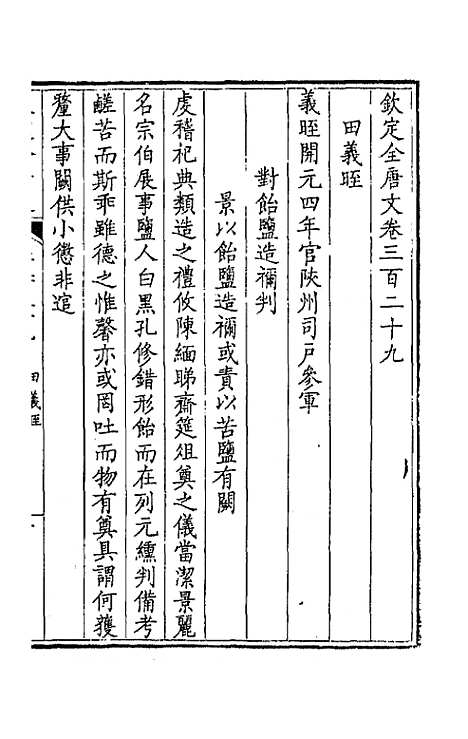 欽定全唐文卷三百二十九
田義晊
義晊開元四年官陝州司戶參軍
對飴鹽造禰判
景以飴鹽造禰或責以苦鹽有闕
虔稽祀典類造之禮攸陳緬睇齋筵俎奠之儀當潔景麗
名宗伯展事鹽人白黑孔修錯形飴而在列元纁判備考
鹺苦而斯乖雖德之惟馨亦或罔吐而物有奠具謂何獲
釐大事闕供小懲非逭
田義晊